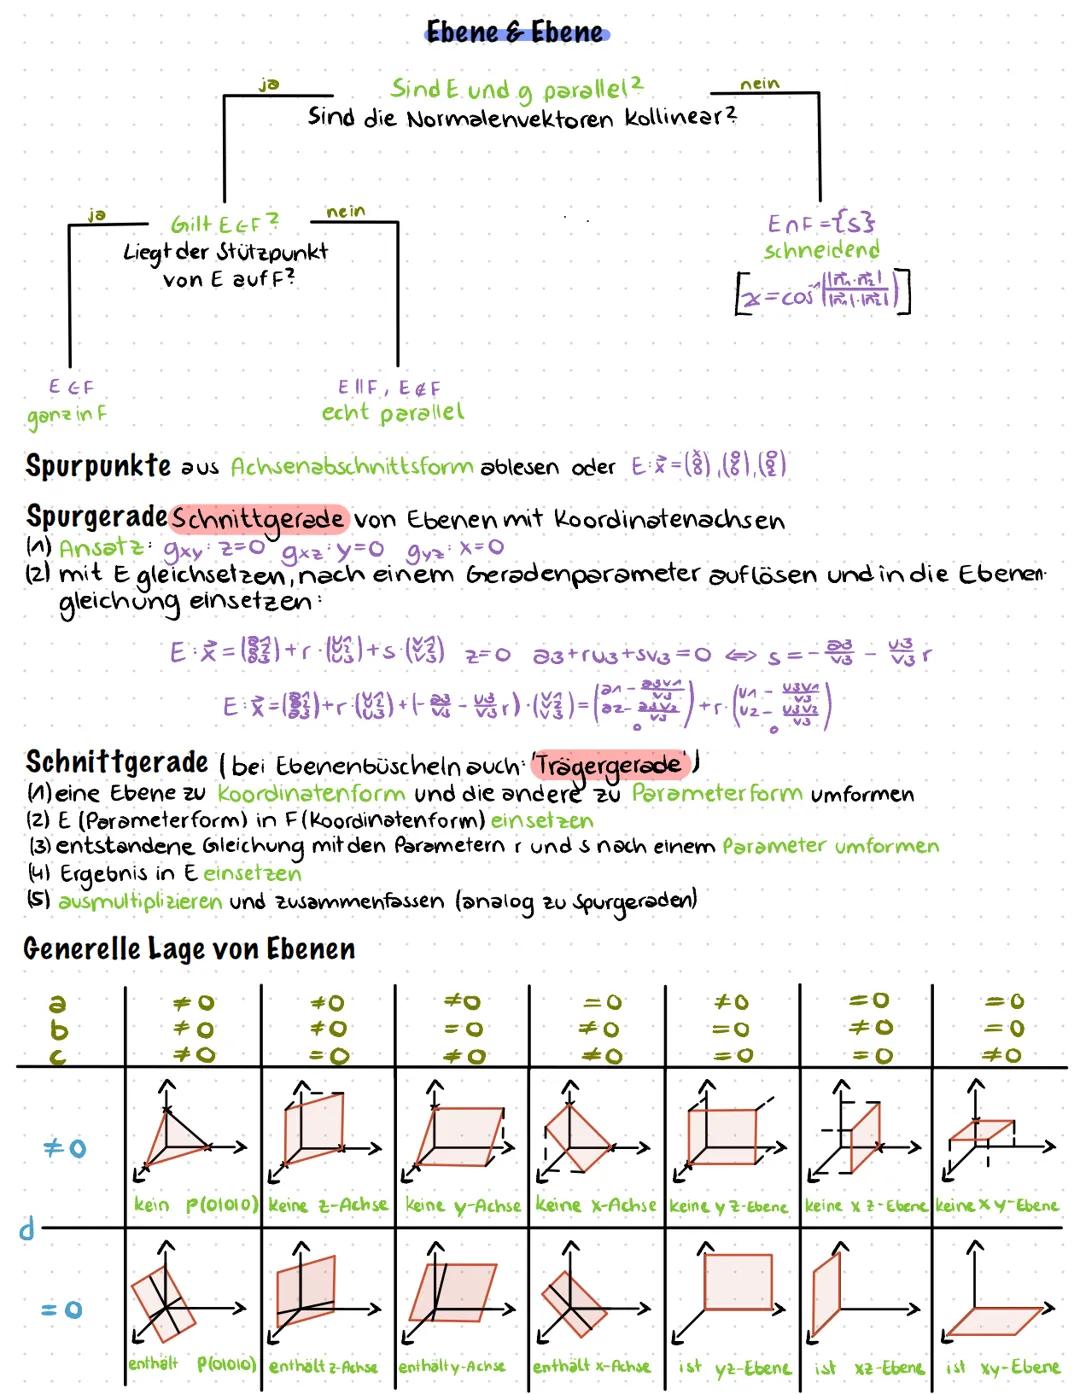 Ebene & Ebene
ja Sind E und g parallel? nein
Sind die Normalenvektoren kollinear?
ja Gilt E∈F? nein
Liegt der Stützpunkt
von E auf F?
E∩F={s}
schneidend
[α=cos⁻¹(|n₁·n₂|/|n₁|·|n₂|)]
E∈F
ganz in F
E∥F, E∉F
echt parallel
Spurpunkte aus Achsenabschnittsform ablesen oder E:x⃗=(x 0 0),(0 y 0),(0 0 z)
Spurgerade Schnittgerade von Ebenen mit Koordinatenachsen
(1) Ansatz: gxy: z=0 gxz: y=0 gyz: x=0
(2) mit E gleichsetzen, nach einem Geradenparameter auflösen und in die Ebenen-
gleichung einsetzen:
E:x⃗=(a1 a2 a3)+r·(u1 u2 u3)+s·(v1 v2 v3) z=0 a3+ru3+sv3=0 ⟺ s=-a3/v3 - u3/v3 r
E:x⃗=(a1 a2 a3)+r·(u1 u2 u3)+(-a3/v3 - u3/v3 r)·(v1 v2 v3)=(a1 - a3v1/v3 a2 - a3v2/v3 0)+r·(u1 - u3v1/v3 u2 - u3v2/v3 0)
Schnittgerade (bei Ebenenbüscheln auch: 'Trägergerade')
(1) eine Ebene zu Koordinatenform und die andere zu Parameterform umformen
(2) E (Parameterform) in F (Koordinatenform) einsetzen
(3) entstandene Gleichung mit den Parametern r und s nach einem Parameter umformen
(4) Ergebnis in E einsetzen
(5) ausmultiplizieren und zusammenfassen (analog zu Spurgeraden)
Generelle Lage von Ebenen
a ≠0 ≠0 ≠0 =0 ≠0 =0 =0
b ≠0 ≠0 =0 ≠0 =0 ≠0 =0
c ≠0 =0 ≠0 ≠0 =0 =0 ≠0
≠0
kein P(0|0|0) keine z-Achse keine y-Achse keine x-Achse keine yz-Ebene keine xz-Ebene keine xy-Ebene
d
=0
enthält P(0|0|0) enthält z-Achse enthält y-Achse enthält x-Achse ist yz-Ebene ist xz-Ebene ist xy-Ebene